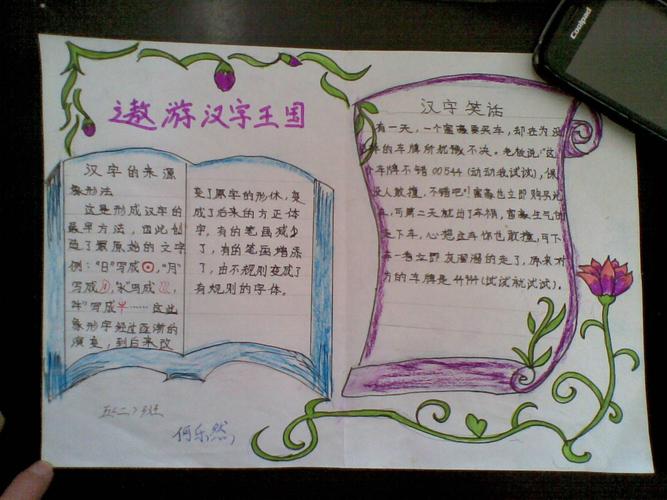 遨游汉字王国
汉字的来源
象形法
这是形成汉字的
最早方法，由此创
造了最原始的文字
例："日"写成，"月"
写成，"水"写成，
"牛"写成……这些
象形字经过逐渐的
演变，到后来改
变了原字的形体，变
成了后来的方正体
字，有的笔画减少
了，有的笔画增添
了，由不规则变成了
有规则的字体。
五（二）班
何乐然
汉字笑话
有一天，一个富豪要买车，却在为选
车的车牌所犹豫不决。老板说："这
个车牌不错00544（动动我试试），保
没人敢撞，不错吧！富豪也立即购买
车，可第二天就出了车祸，富豪生气的
走下车，心想这车你也敢撞，可下
车一看立即灰溜溜的走了，原来对
方的车牌是44944（试试就试试）。
Coolpad